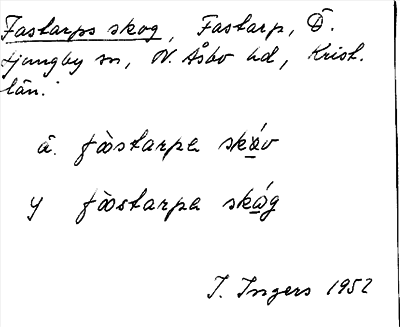 Fastarps skog, Fastarp, Ö.
Ljungby sn, N. Åsbo hd, Krist.
län.
ä. fàstarpa skáv
y fàstarpa skág
I. Ingers 1952